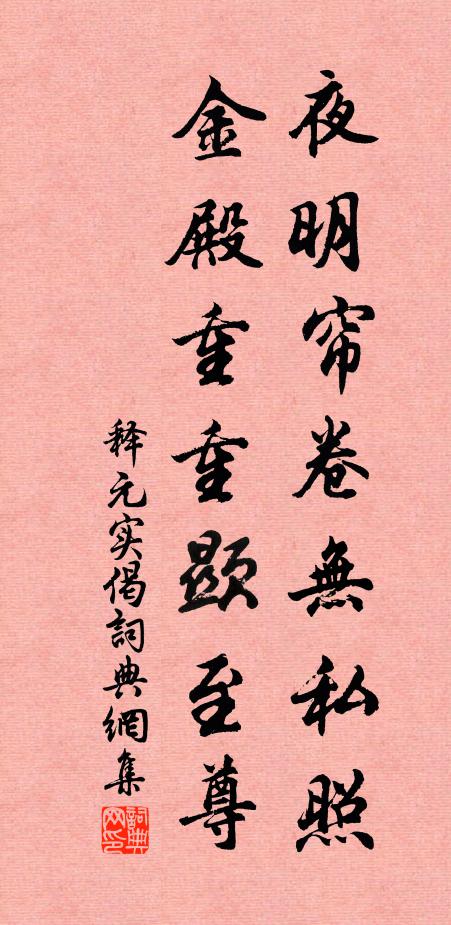 夜明帘卷無私照
金殿重重顯至尊
释元实偈詞典網集
詞典网印